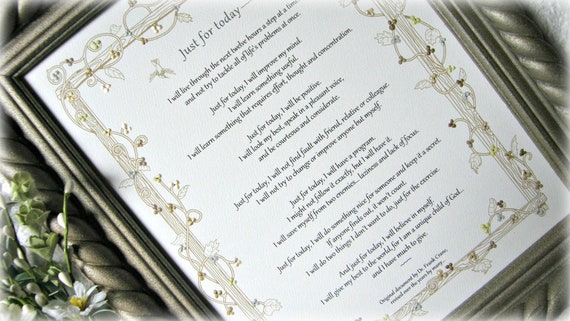 Just for today...
I will live through the next twelve hours a step at a time
and not try to tackle all of life's problems at once.
Just for today, I will improve my mind.
I will learn something useful.
I will learn something that requires effort, thought and concentration.
Just for today, I will be positive.
I will look my best, speak in a pleasant voice,
and be courteous and considerate.
Just for today, I will not find fault with friend, relative or colleague.
I will not try to change or improve anyone but myself.
Just for today, I will have a program.
I might not follow it exactly, but I will have it.
I will save myself from two enemies... laziness and lack of focus.
Just for today, I will do something nice for someone and keep it a secret.
If anyone finds out, it won't count.
I will do two things I don't want to do, just for the exercise.
And just for today, I will believe in myself.
I will give my best to the world, for I am a unique child of God...
and I have much to give.
Original document by Dr. Frank Crane,
revised over the years by many...